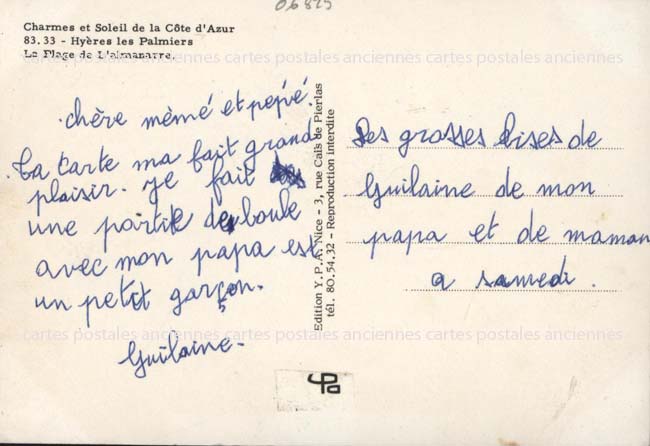 06825
Charmes et Soleil de la Côte d'Azur
83.33 - Hyères les Palmiers
La Plage de L'almanarre
cartes postales anciennes cartes postales anciennes cartes postales anciennes
chère mèmé et pepé.
ta carte ma fait grand
plaisir. je fait
une partie de boule
avec mon papa est
un petit garçon.
Guilaine.
Edition Y.P.A. Nice - 3, rue Caïs de Pierlas
tél. 80.54.32 - Reproduction interdite
Des grosses bises de
Guilaine de mon
papa et de maman
a samedi.
cartes postales anciennes cartes postales anciennes cartes postales anciennes